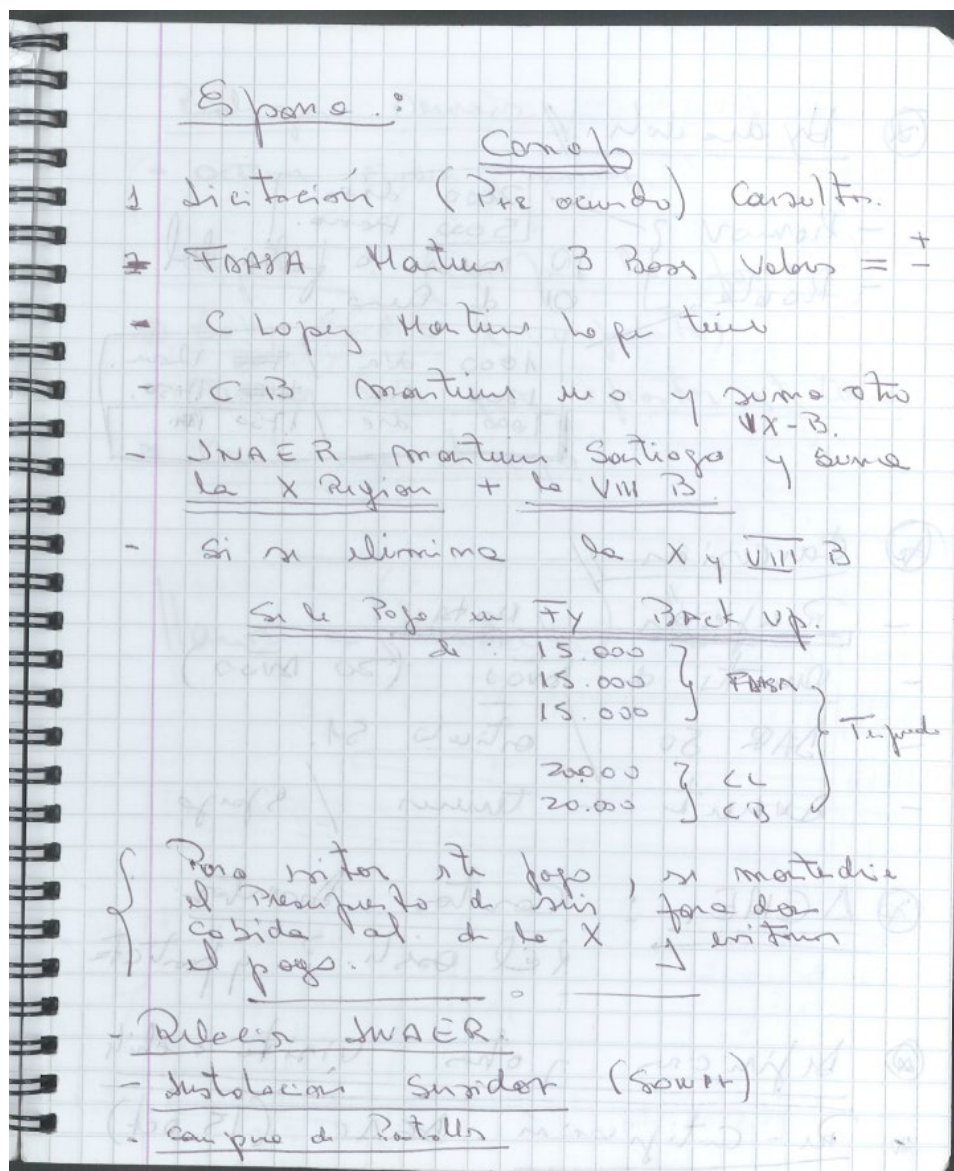 España :
Conaf
1 Licitación (Pre acuerdo) Consultor.
2 FAASA Mantiene 3 Bases Valores = ±
- C Lopez Mantiene lo que tiene
- CB mantiene uno y suma otro
IX-B.
- INAER mantiene Santiago y suma
la X Region + la VIII B.
- Si se elimina la X y VIII B
Se le Paga un Back up.
de : 15.000
15.000 FAASA
15.000
20.000 CL
20.000 CB
Para evitar este pago, se
el Presupuesto de para dar
cabida al de la X y
el pago.
- Relación INAER
- Instalación Servidor
- compra de Pantallas